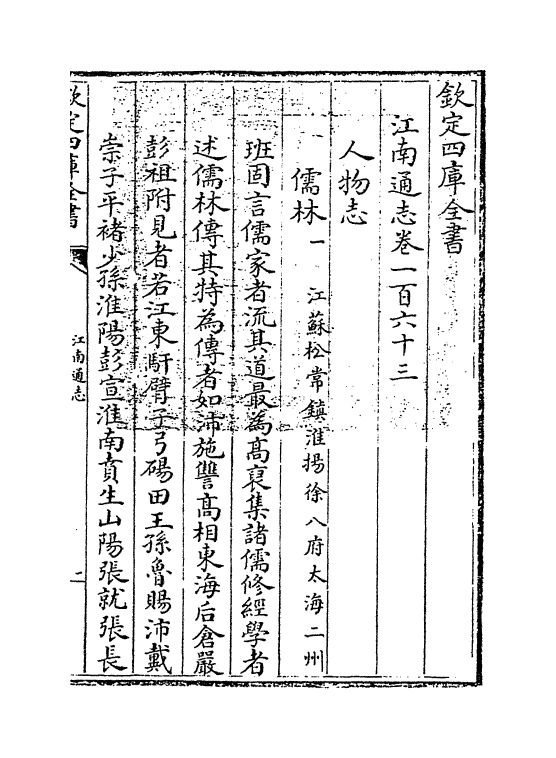 欽定四庫全書
江南通志卷一百六十三
人物志
儒林一 江蘇松常鎮淮揚徐八府太海二州
班固言儒家者流其道最為髙裒集諸儒修經學者
述儒林傳其特為傳者如沛施讐髙相東海后倉嚴
彭祖附見者若江東馯臂子弓碭田王孫魯賜沛戴
崇子平褚少孫淮陽彭宣淮南賁生山陽張就張長
欽定四庫全書
江南通志